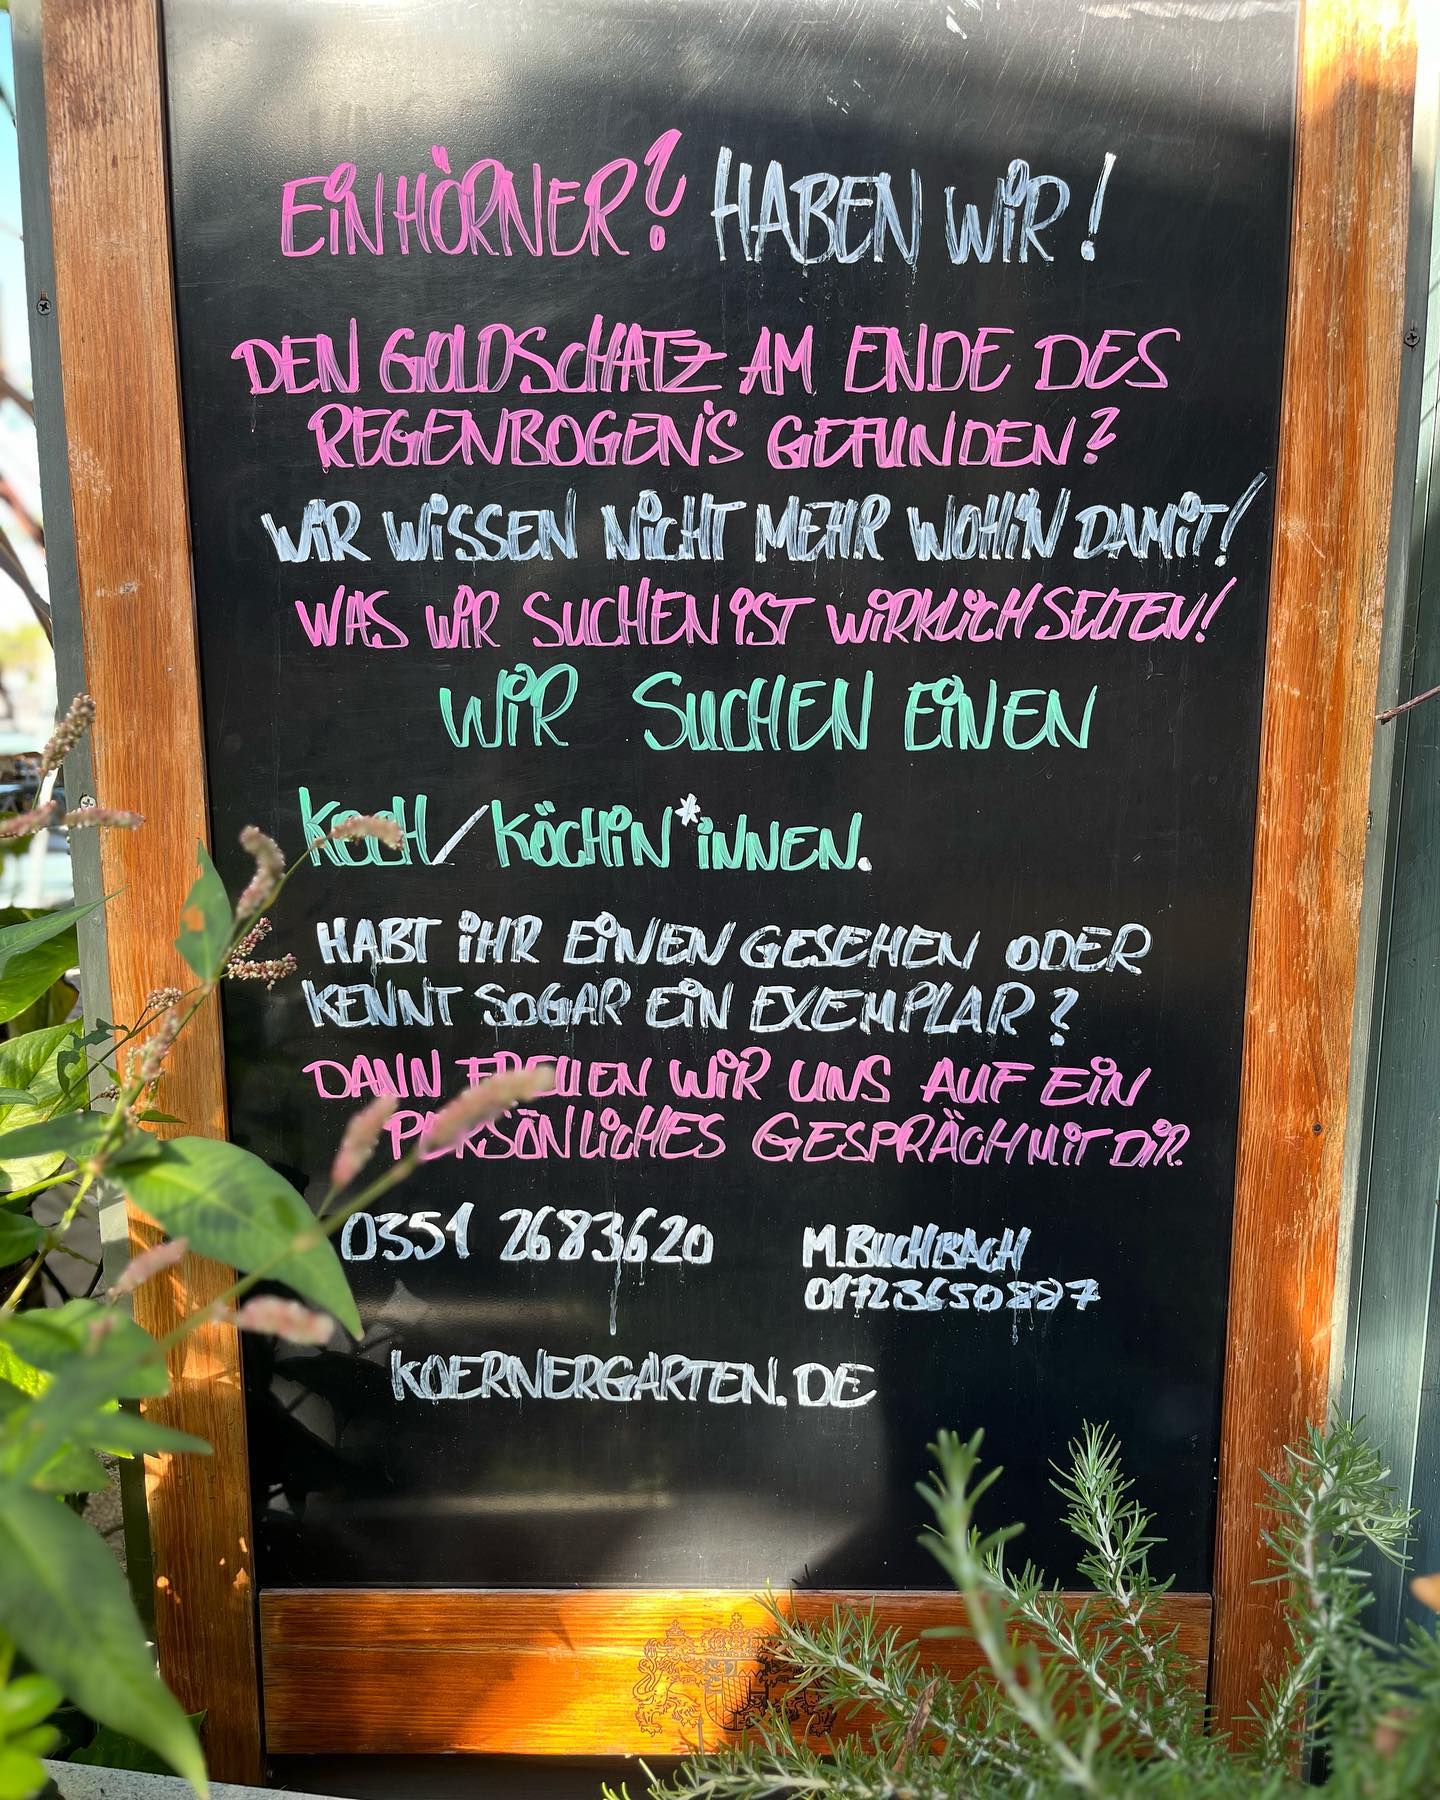 EiNHÖRNER? HABEN WiR!
DEN GOLDSCHATZ AM ENDE DES
REGENBOGEN'S GEFUNDEN?
WiR WiSSEN NiCHT MEHR WOHiN DAMiT!
WAS WiR SUCHEN iST WiRKLiCH SELTEN!
WiR SUCHEN EiNEN
KOCH/KÖCHiN*iNNEN.
HABT iHR EiNEN GESEHEN ODER
KENNT SOGAR EiN EXEMPLAR?
DANN FREUEN WiR UNS AUF EiN
PERSÖNLiCHES GESPRÄCH MiT DiR.
0351 2683620 M.BUCHBACH
01723650887
KOERNERGARTEN.DE